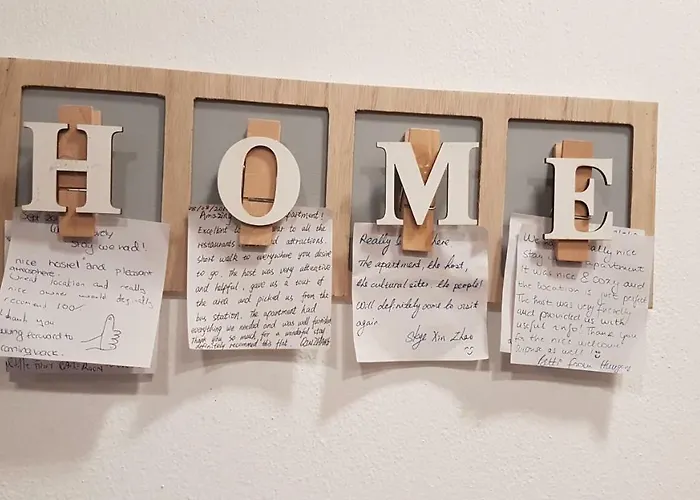 HOME
Stay we had!
nice hostel and pleasant
atmosphere.
location and really
nice owner would definitely
recomend 100%
thank you
forward to
coming back.
Amazing apartment!
Excellent to all the
restaurants attractions.
short walk to everywhere you desire
to go. The host was very attentive
and helpful, gave us a tour of
the area and picked us from the
bus station. The apartment had
everything we needed and was well furnished
Thank you so much for a wonderful stay
definitely recommend this flat.
Really here,
The apartment, the host,
the cultural sites, the people!
Will definitely come to visit
again
Skye Xin Zhao
We had really nice
stay apartment
It was nice & cozy and
the location is just perfect
The host was very friendly
and provided us with
useful info! Thank you
for the nice welcome
as well!
from Hungary